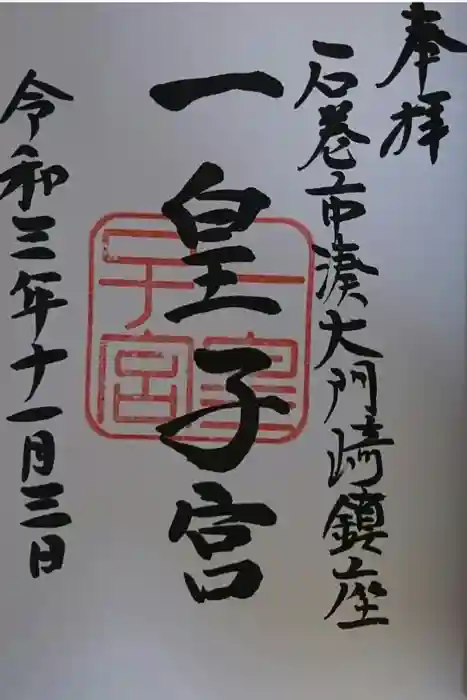 奉拝
石巻市湊大門崎鎮座
一皇子宮
一皇
子宮
令和三年十一月三日